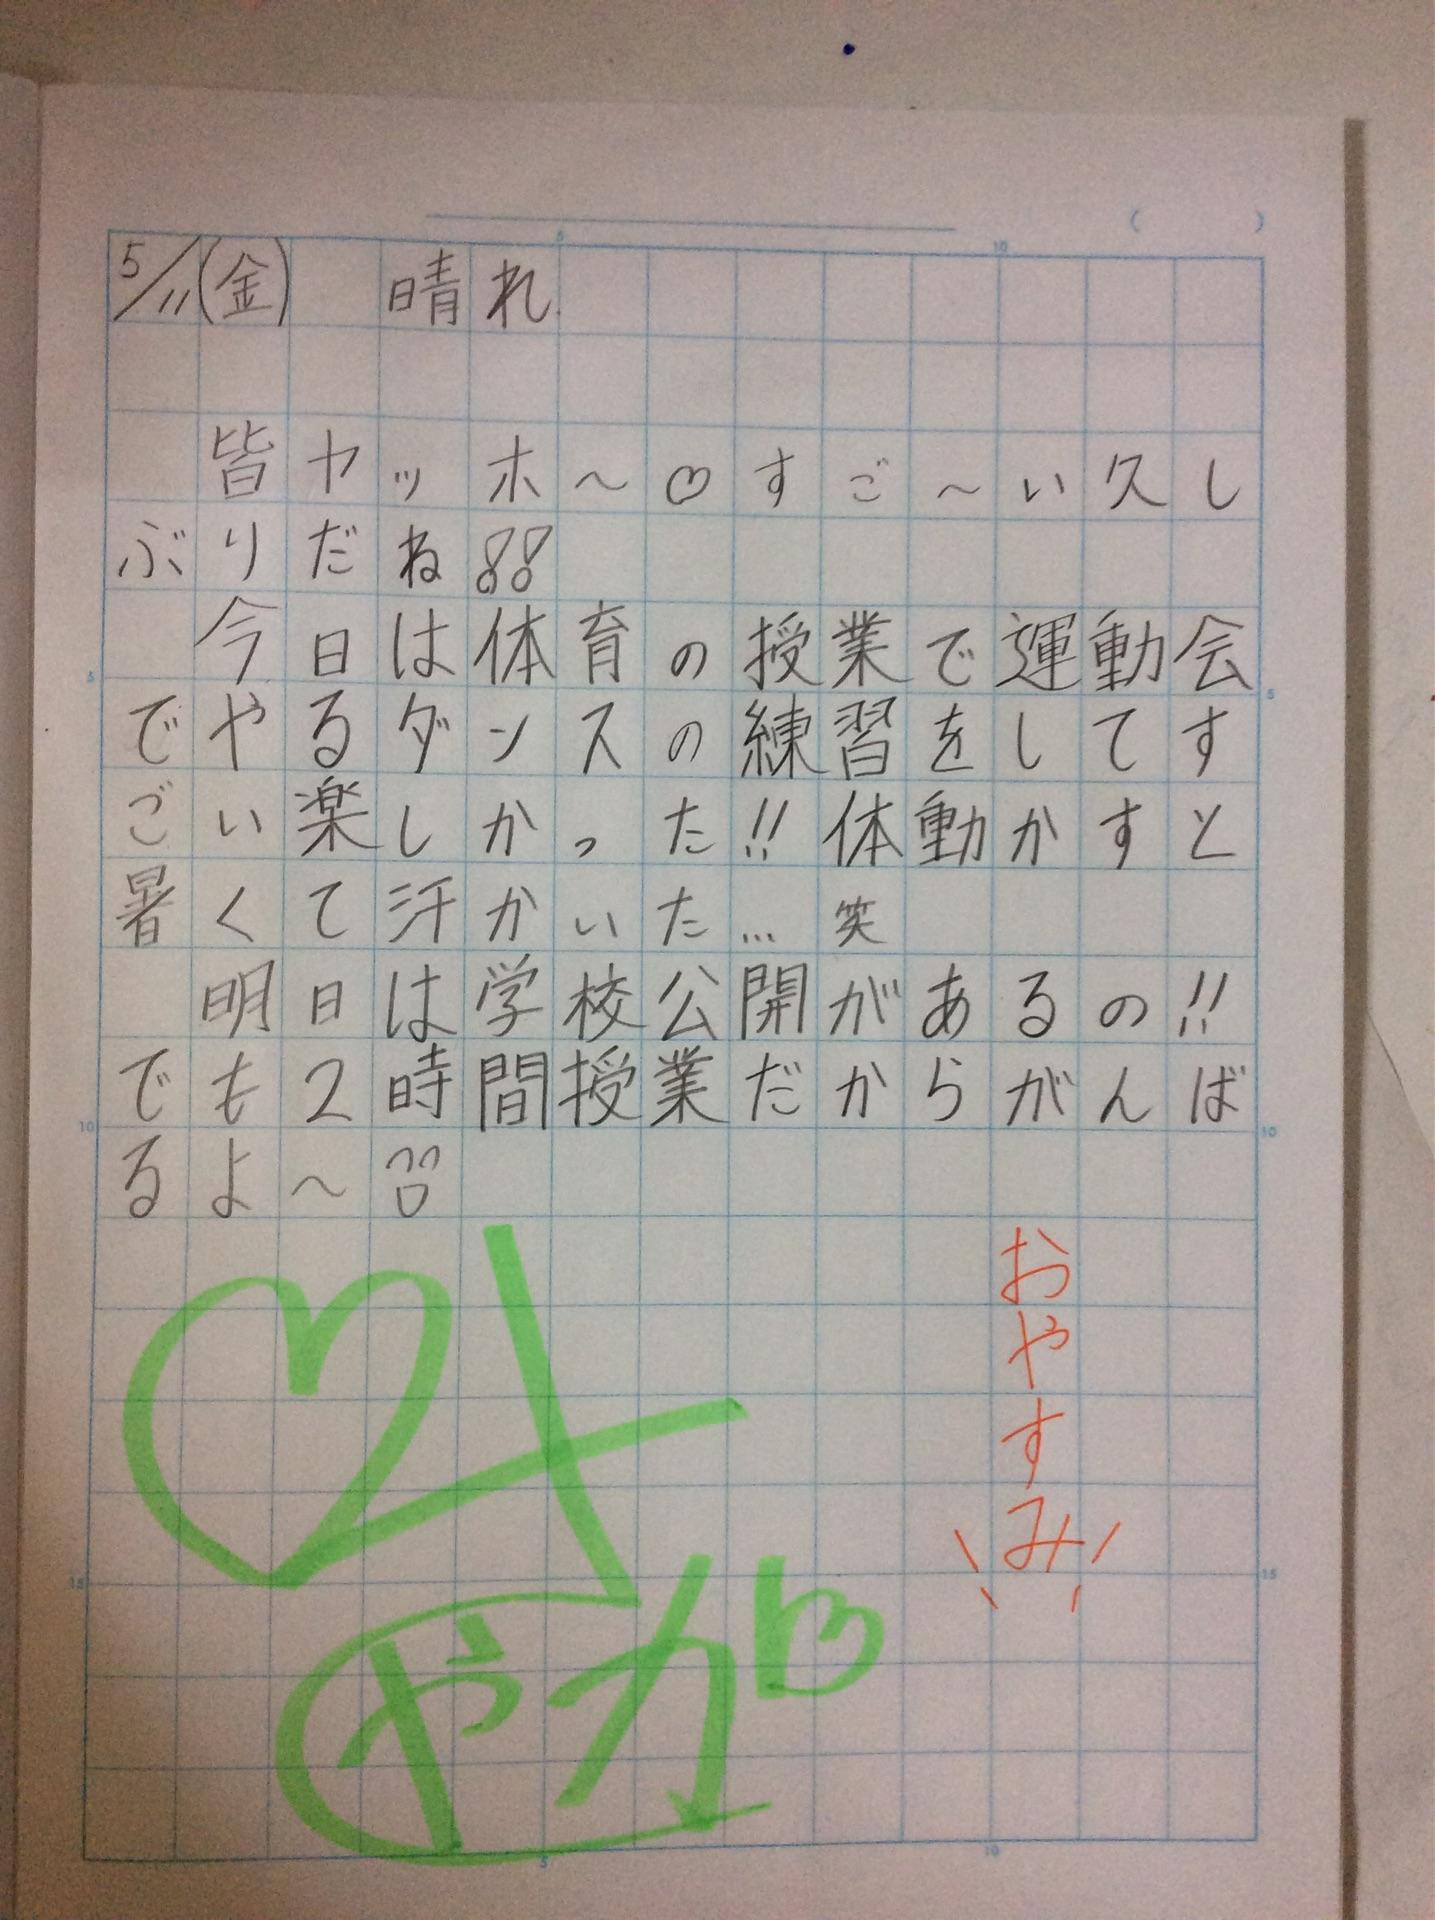 5/11(金) 晴れ
皆ヤッホ〜♡すご〜い久し
ぶりだね!!
今日は体育の授業で運動会
でやるダンスの練習をしてす
ごい楽しかった!!体動かすと
暑くて汗かいた…笑
明日は学校公開があるの!!
でも2時間授業だからがんば
るよ〜
おやすみ